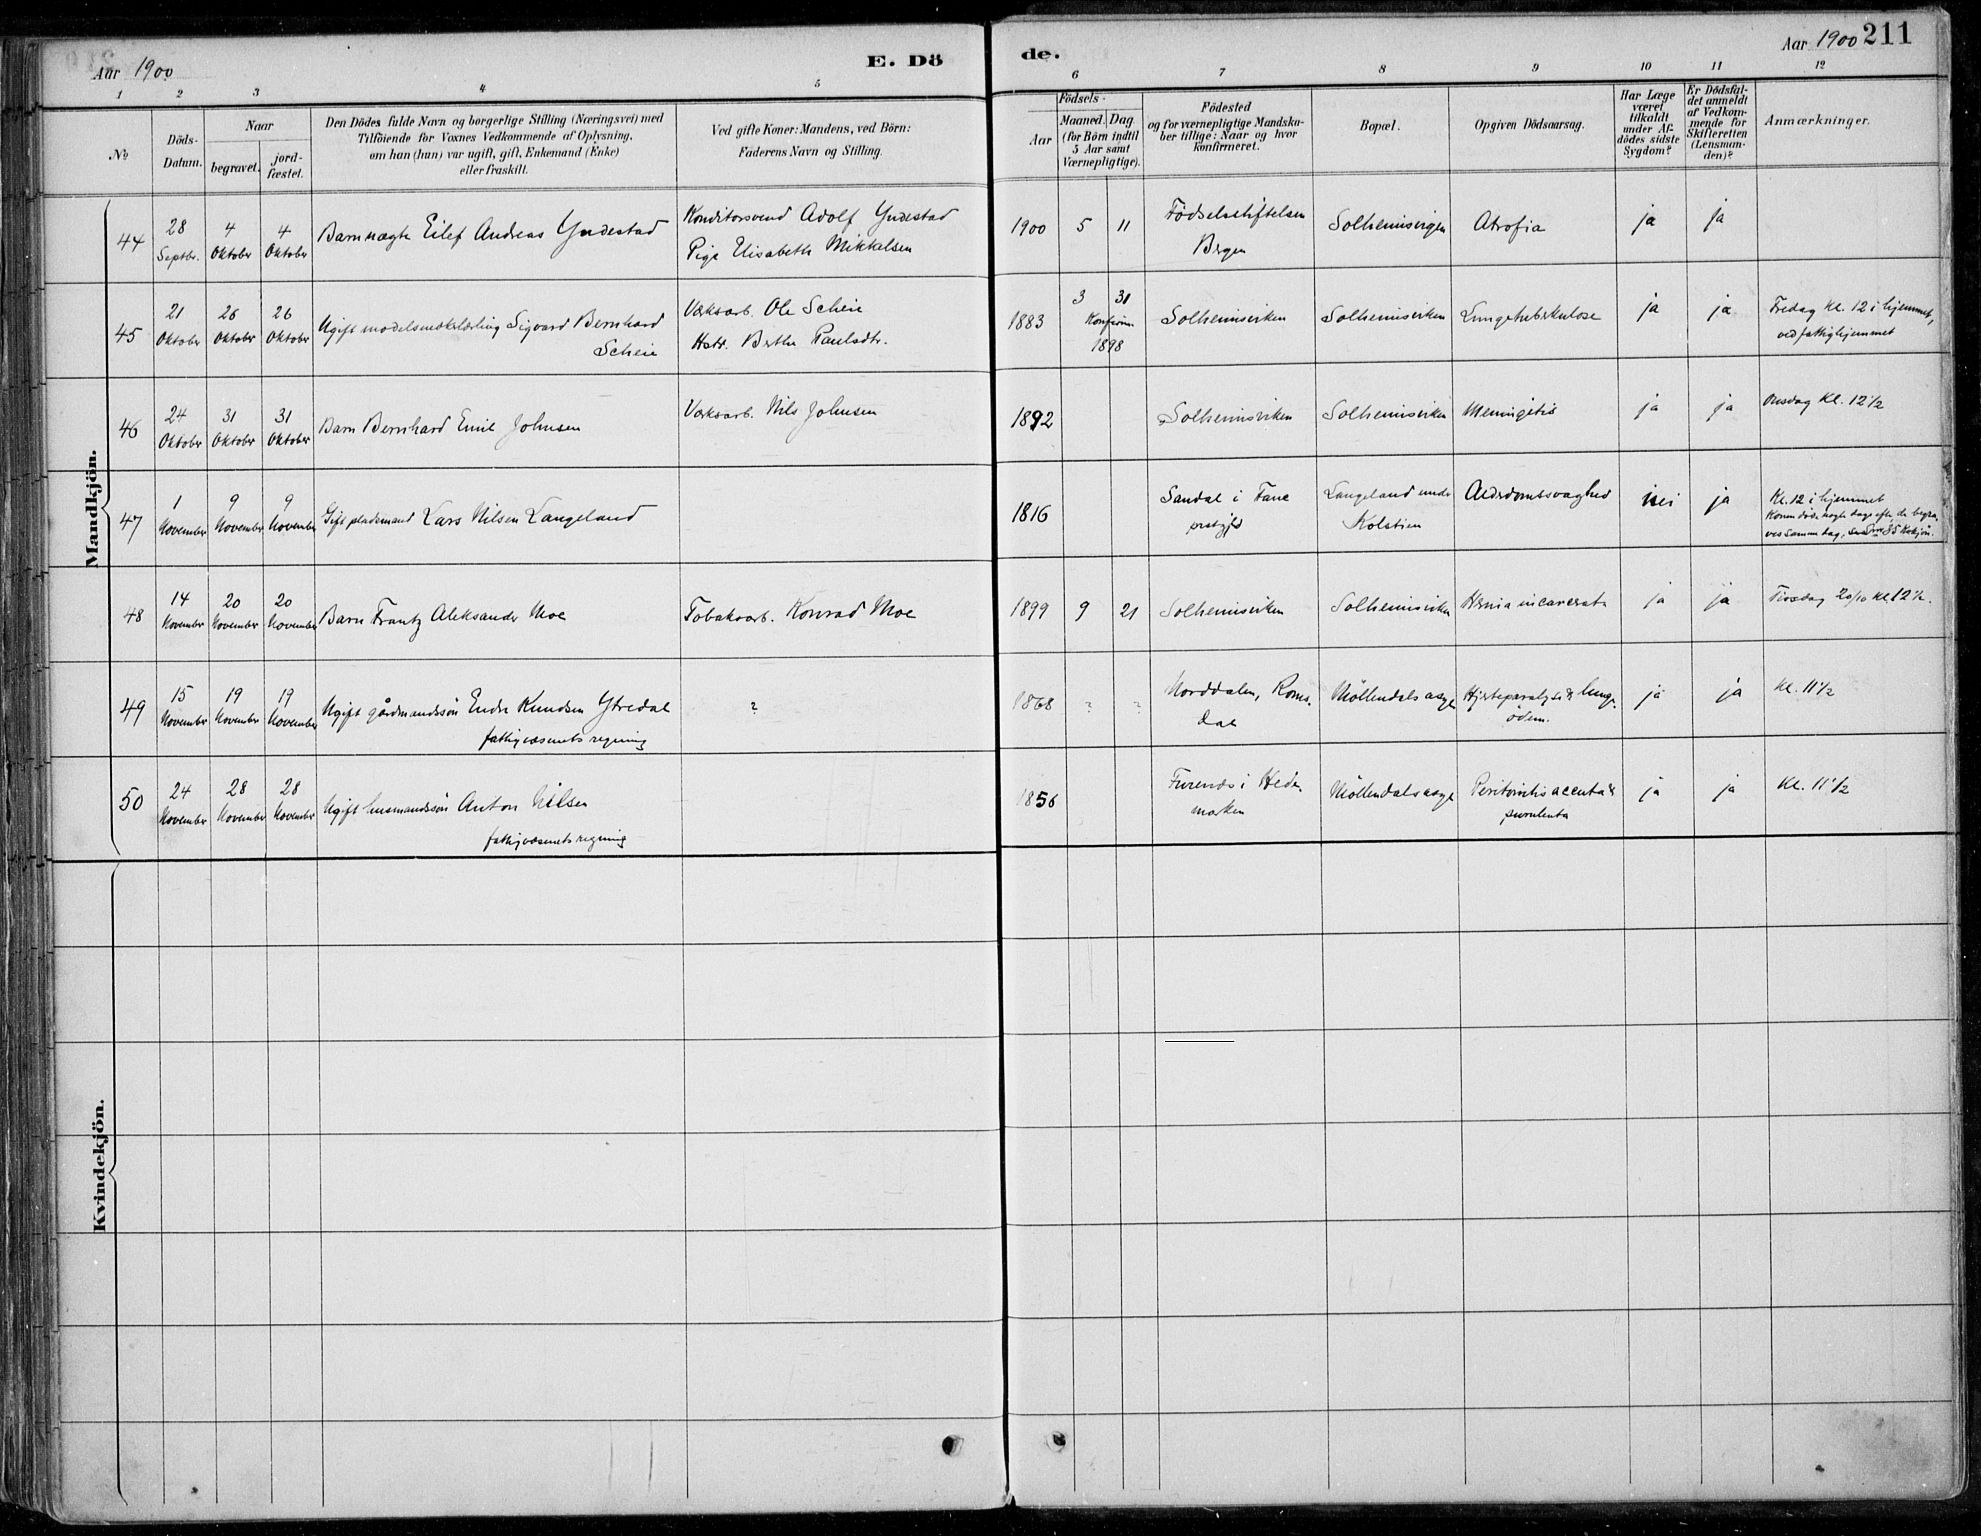 Aar 1900
E. Dö
de.
Aar 1900
211
1 2 3 4 5
6 7 8 9 10 11 12
No
Döds-
Datum.
Naar
begravet.
jord-
fæstet.
Den Dödes fulde Navn og borgerlige Stilling (Næringsvei) med
Tilföiende for Voxnes Vedkommende af Oplysning,
om han (hun) var ugift, gift, Enkemand (Enke)
eller fraskilt.
Ved gifte Koner: Mandens, ved Börn:
Faderens Navn og Stilling.
Födsels-
Aar
Maaned.
Dag
(for Börn indtil
5 Aar samt
Værnepligtige).
Födested
og for værnepligtige Mandska-
ber tillige: Naar og hvor
konfirmeret.
Bopæl.
Opgiven Dödsaarsag.
Har Læge
været
tilkaldt
under Af-
dödes sidste
Sygdom?
Er Dödsfal-
det anmeldt
af Vedkom-
mende for
Skifteretten
(Lensman-
den)?
Anmærkninger.
Mandkjön.
44
28
Septbr.
4
Oktober
4
Oktober
Barn uægte Eilef Andreas Yndestad
Konditorsvend Adolf Yndestad
Pige Elisabeth Mikkelsen
1900 5 11
Födselsstiftelsen
Bergen
Solheimsvigen
Atrofia
ja
ja
45
21
Oktober
26
Oktober
26
Oktober
Ugift modelsnekkerlærling Sigvard Bernhard
Scheie
Værksarb. Ole Scheie
Hstr. Berthe Paulsdtr.
1883
3 31
Konfirm
1898
Solheimsviken
Solheimsviken
Lungetuberkulose
ja
ja
Fredag kl. 12 i hjemmet,
ved fattighjemmet
46
24
Oktober
31
Oktober
31
Oktober
Barn Bernhard Emil Johnsen
Værksarb. Nils Johnsen
1892
Solheimsviken
Solheimsviken
Meningitis
ja
ja
Onsdag kl. 12 1/2
47
1
November
9
November
9
November
Gift pladsmand Lars Nilsen Langeland
1816
Sandal i Fane
prstgjld
Langeland under
Kolstien
Alderdomssvaghed
nei
ja
Kl. 12 i hjemmet
Konen döde nogle dage efter, de begra-
ves samme dag, No 35 Kvkjön.
48
14
November
20
November
20
November
Barn Frantz Aleksander Moe
Tobaksarb. Konrad Moe
1899 9 21
Solheimsviken
Solheimsviken
Hernia incarcerata
ja
ja
Tirsdag 20/10 kl. 12 1/2.
49
15
November
19
November
19
November
Ugift gårdmandssön Endre Knudsen Ytredal
fattigvæsenets regning
?
1868 ? ?
Norddalen, Roms-
dal
Möllendals asyl
Hjerteparalyse & lunge-
ödem.
ja
ja
Kl. 11 1/2
50
24
November
28
November
28
November
Ugift husmandssön Anton Nilsen
fattigvæsenets regning
1856
Furenes i Hede-
marken
Möllendals asyl
Peritonitis accuta &
purulenta
ja
ja
Kl. 11 1/2
Kvindekjön.